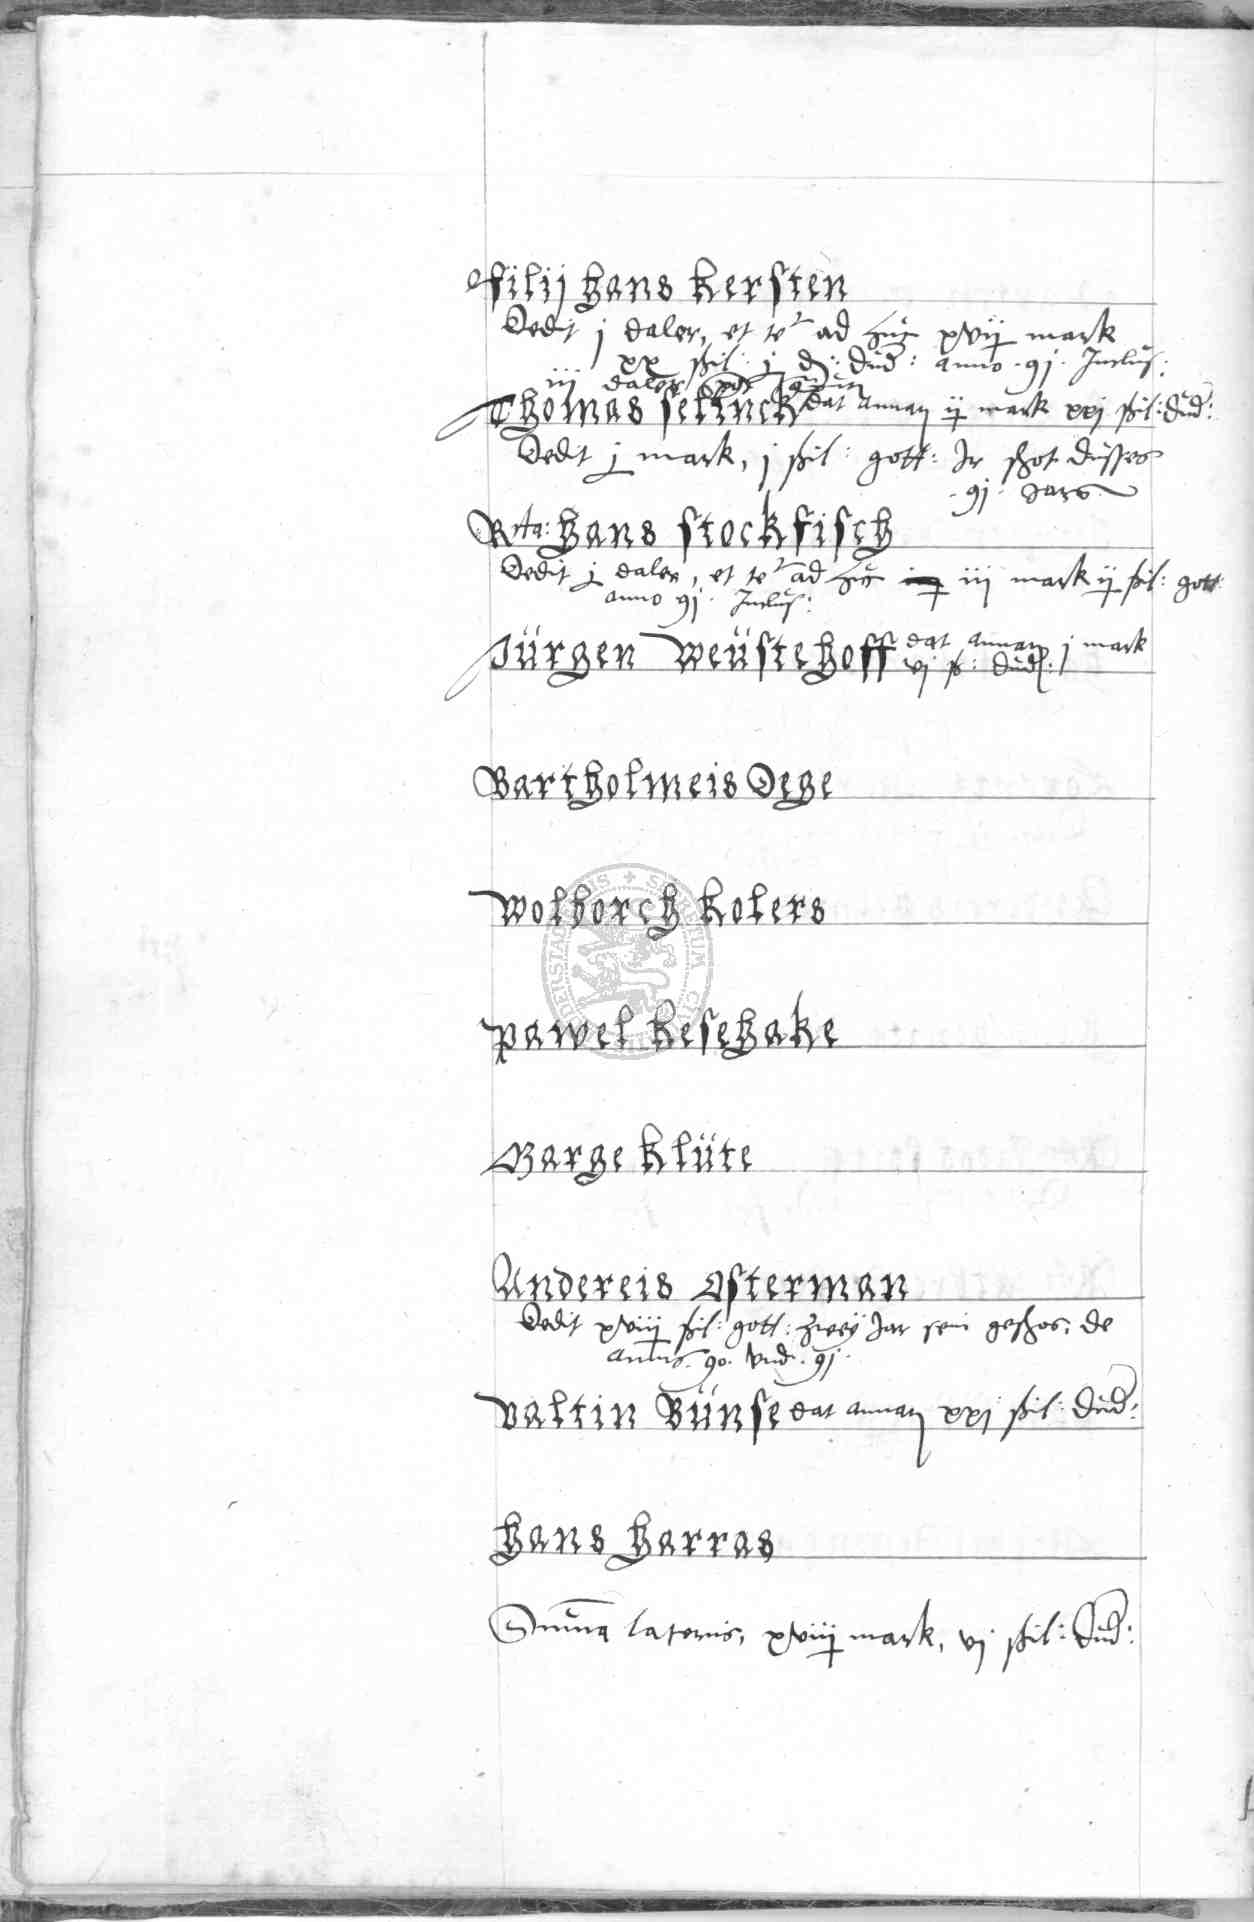 Filij Hans Kersten
Dedit j daler, et te^r ad huc xvij mark
xx ßil: j d: dud: anno .91. Inclus:
iij daler
Thomas selinck dat annan ij mark xxj ßil: dud:
Dedit j mark, j ßil: gott: Jr schot dusses
.91. Jars
Rta: Hans stockfisch
Dedit j daler, et te^r ad huc iij mark ij ßil: gott:
anno 91. Inclus:
Jürgen Weüstehoff dat annan j mark
vj ß: dud:
Bartholmeis Dege
Wolborch Kolers
Pawel Kesehake
Barge Klüte
Andereis Osterman
Dedit xviij ßil: gott: zweÿ Jar sein geschos, de
annis. 90. vnd .91.
Valtin Bünse dat annan xxj ßil: dud:
Hans Harras
Summa lateris, xviij mark, vj ßil: dud: